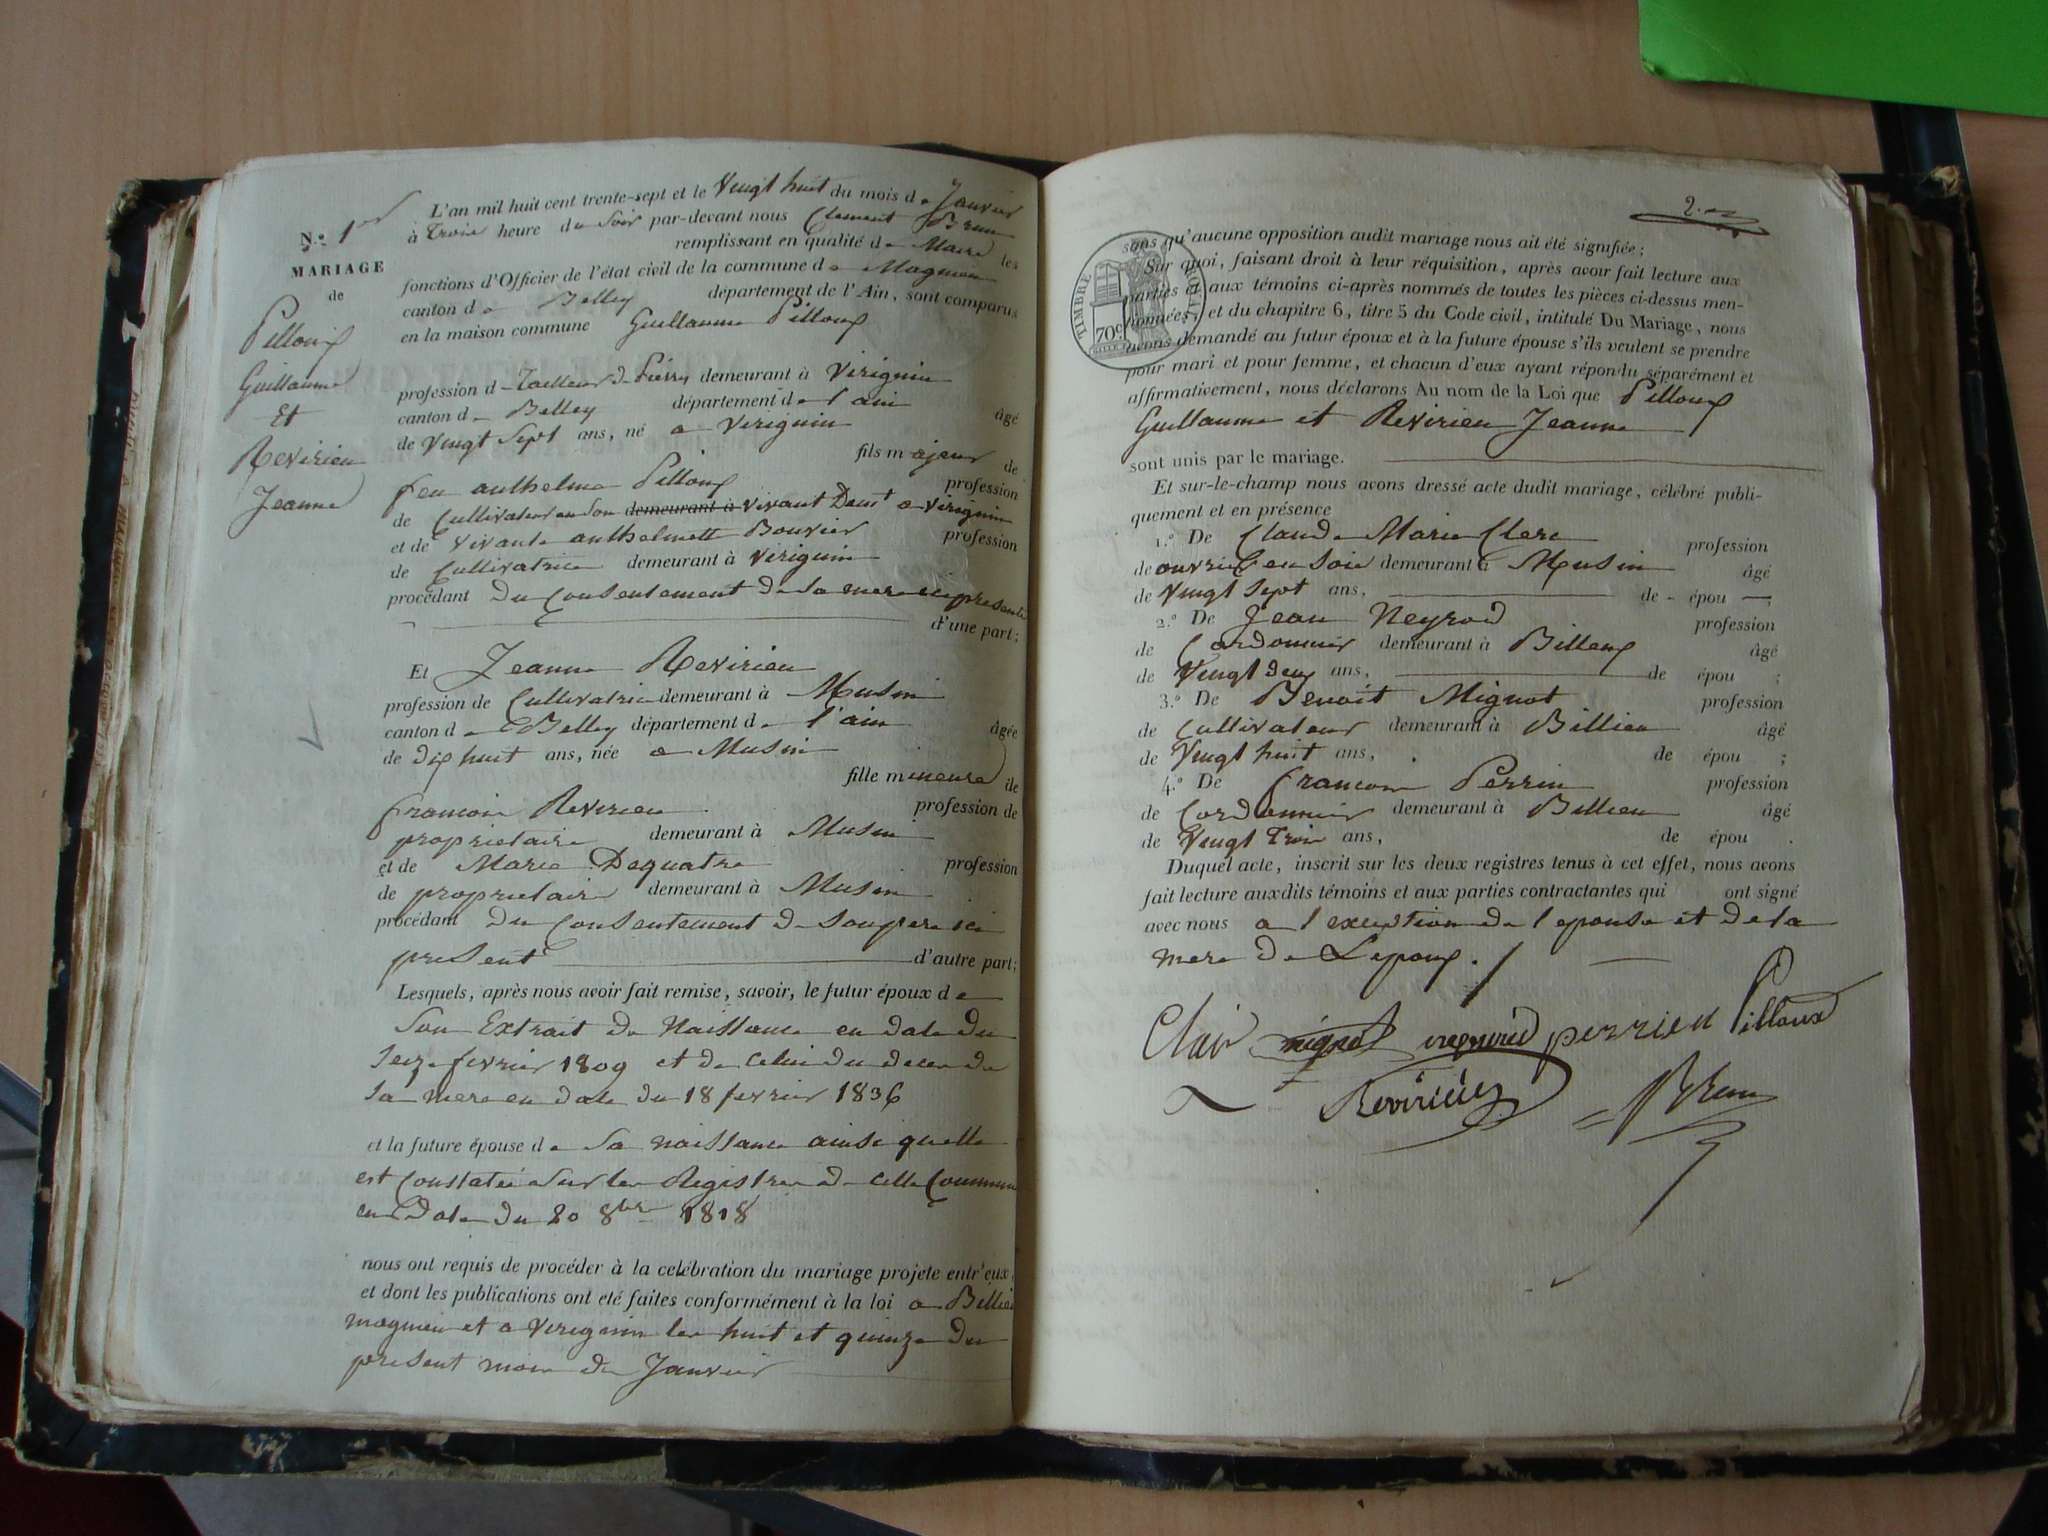 N.º 1er
MARIAGE
de
Pilloux
Guillaume
Et
Revirieu
Jeanne
L'an mil huit cent trente-sept et le Vingt huit du mois de Janvier
à Trois heure du Soir par-devant nous Clement Brun
remplissant en qualité de Maire les
fonctions d'Officier de l'état civil de la commune de Magnieu
canton de Belley département de l'Ain, sont comparus
en la maison commune Guillaume Pilloux
profession de Tailleur de Pierres demeurant à Virignin
canton de Belley département de l'ain âgé
de Vingt Sept ans, né a Virignin
fils majeur de
feu anthelme Pilloux profession
de Cultivateur en son demeurant à vivant Deurt a virignin
et de vivante anthelmette Bouvier profession
de Cultivatrice demeurant à Virignin
procédant Du Consentement De Sa mere ici presente
d'une part;
Et Jeanne Revirieu
profession de Cultivatrice demeurant à Musin
canton de Belley département de l'ain âgée
de dix huit ans, née a Musin
fille mineure de
francois Revirieu profession de
proprietaire demeurant à Musin
et de Marie Dequatre profession
de proprietaire demeurant à Musin
procédant Du Consentement De Son pere ici
present d'autre part;
Lesquels, après nous avoir fait remise, savoir, le futur époux de
Son Extrait De Naissance en date du
Seize fevrier 1809 et de Celui du deces de
Sa mere en date du 18 fevrier 1836
et la future épouse de Sa naissance ainsi quelle
est Constatée Sur les Registres de cette Commune
en Date du 20 8bre 1818
nous ont requis de procéder à la celébration du mariage projeté entr'eux,
et dont les publications ont eté faites conformément à la loi a Billieu
magnieu et a Virignin les huit et quinze du
present mois de Janvier
2.
TIMBRE ROYAL
70c
sans qu'aucune opposition audit mariage nous ait été signifiée;
Sur quoi, faisant droit à leur réquisition, après avoir fait lecture aux
parties et aux témoins ci-après nommés de toutes les pièces ci-dessus men-
tionnées, et du chapitre 6, titre 5 du Code civil, intitulé Du Mariage, nous
avons demandé au futur époux et à la future épouse s'ils veulent se prendre
pour mari et pour femme, et chacun d'eux ayant répondu séparément et
affirmativement, nous déclarons Au nom de la Loi que Pilloux
Guillaume et Revirieu Jeanne
sont unis par le mariage.
Et sur-le-champ nous avons dressé acte dudit mariage, célébré publi-
quement et en présence
1.º De Claude Marie Clerc profession
de ouvrier en Soie demeurant à Musin âgé
de Vingt Sept ans, de - épou - ;
2.º De Jean Neyrod profession
de Cordonnier demeurant à Billieux âgé
de Vingt Deux ans, de épou ;
3.º De Benoit Mignot profession
de Cultivateur demeurant à Billieu âgé
de Vingt huit ans, de épou ;
4.º De francois Perrin profession
de Cordonnier demeurant à Billieu âgé
de Vingt Trois ans, de épou .
Duquel acte, inscrit sur les deux registres tenus à cet effet, nous avons
fait lecture auxdits témoins et aux parties contractantes qui ont signé
avec nous a l'exception de l'epouse et de la
mere De L'epoux.
Clair mignot perrien Pilloux
Revirieu Brun